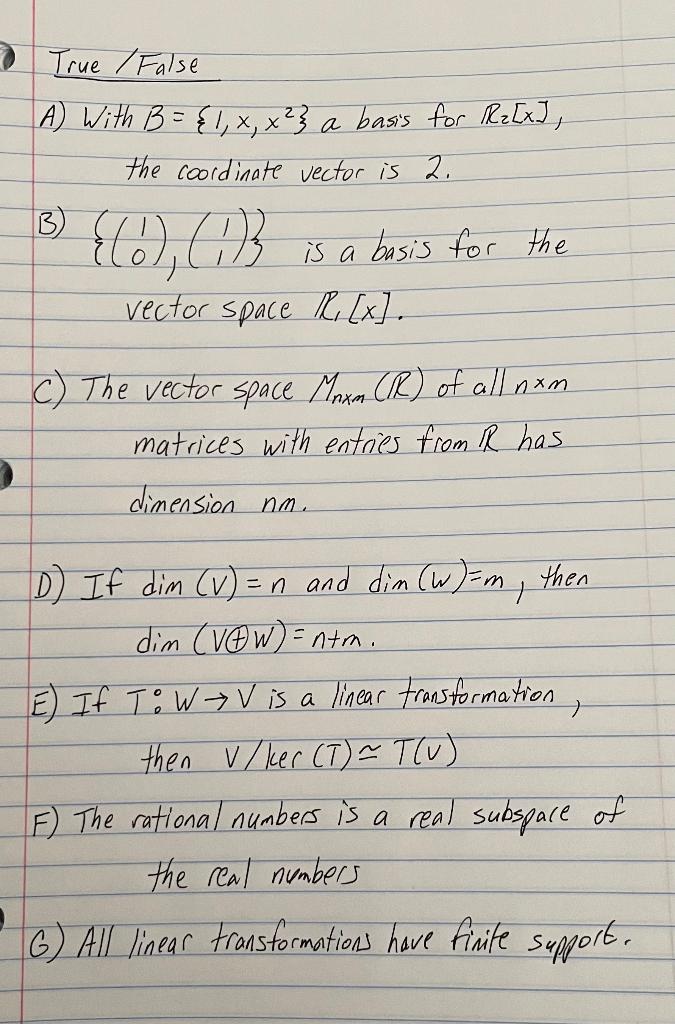 True / False
A) With B = {1, x, x²} a basis for ℝ₂[x],
the coordinate vector is 2.
B) {(1 0), (1 1)} is a basis for the
vector space ℝ₁[x].
C) The vector space Mₙₓₘ(ℝ) of all n×m
matrices with entries from ℝ has
dimension nm.
D) If dim (V) = n and dim (W) = m, then
dim (V⊕W) = n+m.
E) If T: W → V is a linear transformation,
then V/ker (T) ≃ T(V)
F) The rational numbers is a real subspace of
the real numbers
G) All linear transformations have finite support.